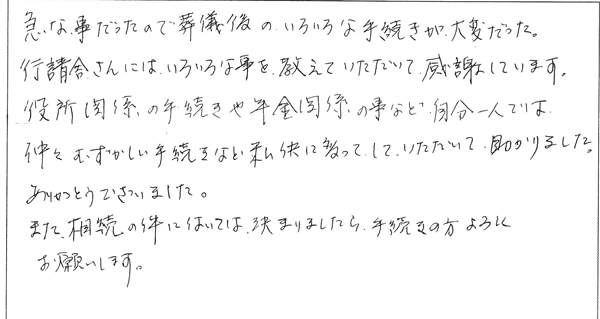 急な事だったので葬儀後の、いろいろな手続きが、大変だった。
行請舎さんには、いろいろな事を、教えていただいて、感謝しています。
役所関係の手続きや年金関係の事など、自分一人では、
仲々むずかしい手続きなど、私共に変って、して、いただいて、助かりました。
ありがとうございました。
また、相続の件については、決まりましたら、手続きの方よろしく
お願いします。